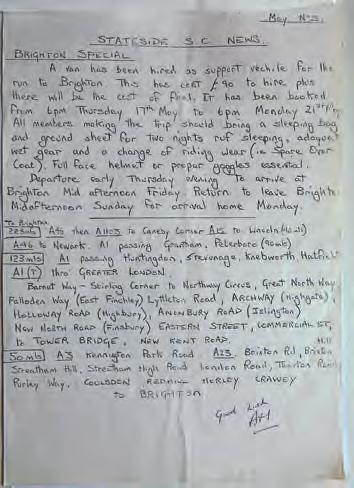 May No 5.
STATESIDE S.C NEWS.
BRIGHTON SPECIAL
A van has been hired as support vechile for the
run to Brighton. This has cost £90 to hire plus
there will be the cost of fuel. It has been booked
from 6pm Thursday 17th May to 6pm Monday 21st May.
All members making the trip should bring a sleeping bag
and ground sheet for two nights ruf sleeping, adaquet
wet gear and a change of riding wear (ie Spare Over
Coat). Full face helmet or propar goggles essential.
Departure early Thursday evening to arrive at
Brighton Mid afternoon Friday. Return to leave Brighton
Midafternoon Sunday for arrival home Monday.
To Brighton
223mls A19 then A1103 to Caneby Corner A15 to Lincoln (40mls)
A46 to Newark. A1 passing Grantham, Peterboro (90mls)
123mls A1 passing Huntingdon, Stevenage, Knebworth, Hatfield
A1(T) thro' GREATER LONDON.
Barnet Way - Stirling Corner to Northway Circus, Great North Way
Falloden Way (East Finchley) Lyttleton Road, ARCHWAY (Highgate),
HOLLOWAY ROAD (Highbury), CANONBURY ROAD (Islington)
NEW NORTH ROAD (Finsbury) EASTERN STREET, COMMERCIAL ST,
to TOWER BRIDGE, NEW KENT ROAD.
50mls A3 Kennington Park Road A23. Brixton Rd, Brixton Hill
Streatham Hill, Streatham High Road London Road, Thornton Road
Purley Way, COULSDEN REDHILL HORLEY CRAWLEY
to BRIGHTON
Good Luck